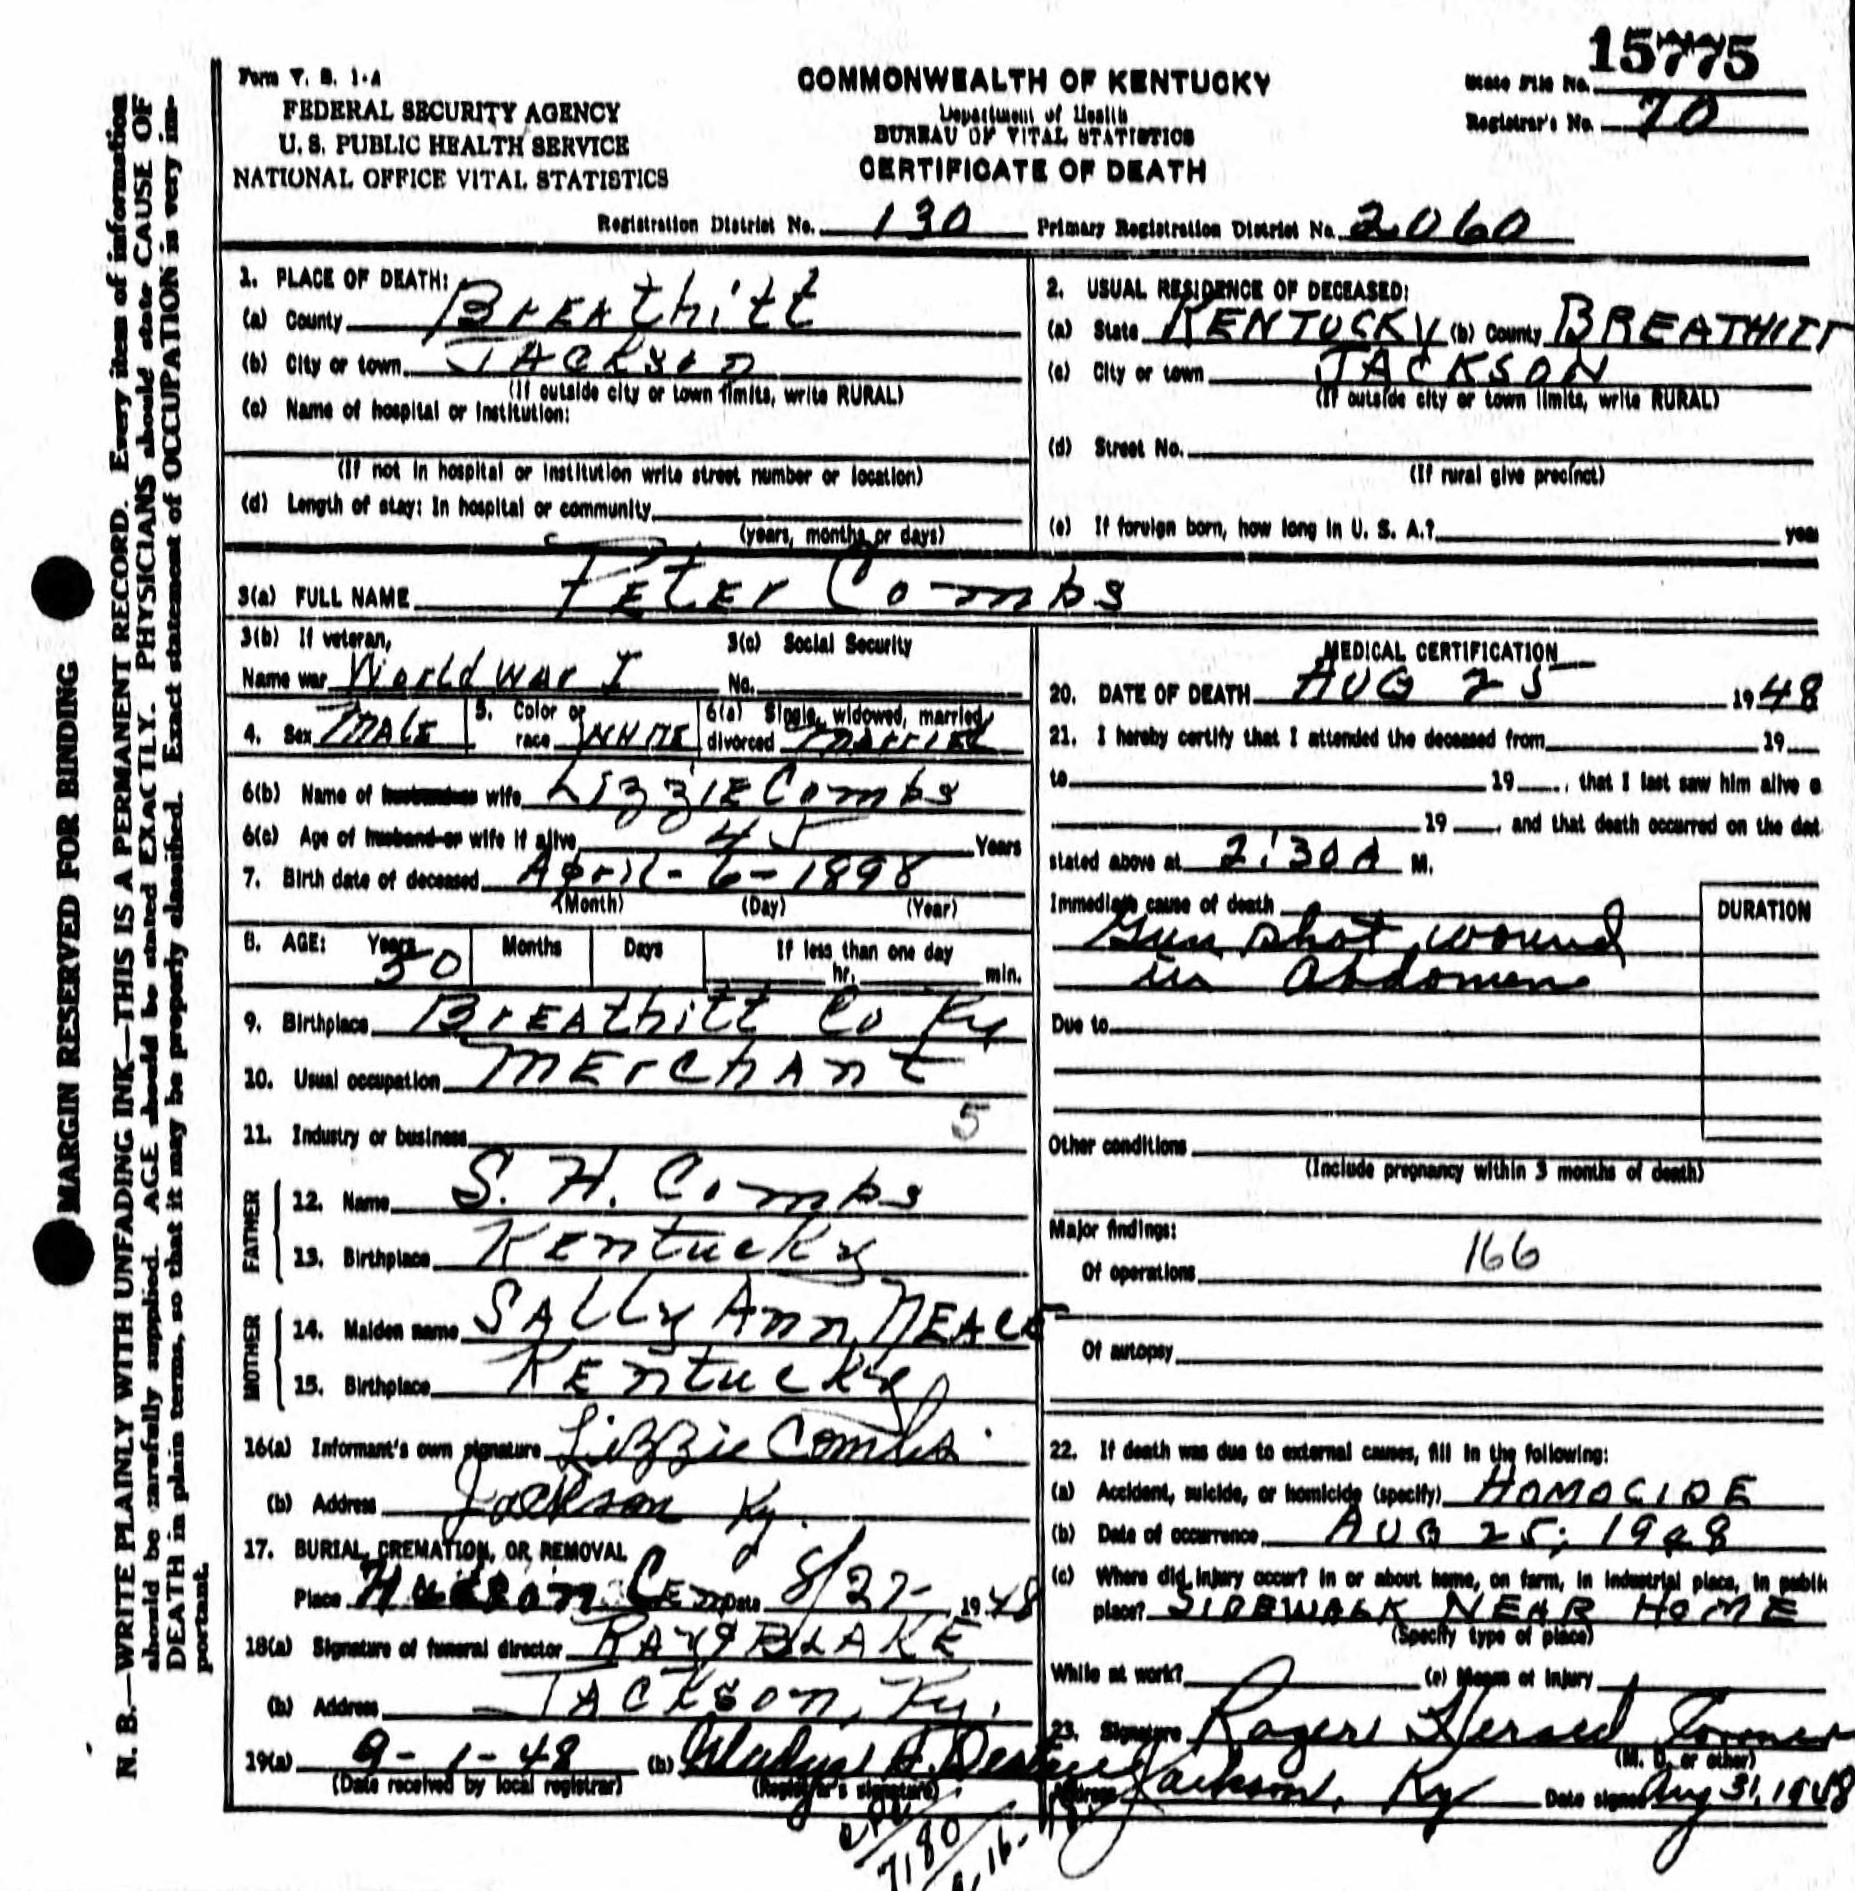 15775
Form V. S. 1-A
FEDERAL SECURITY AGENCY
U. S. PUBLIC HEALTH SERVICE
NATIONAL OFFICE VITAL STATISTICS
COMMONWEALTH OF KENTUCKY
Department of Health
BUREAU OF VITAL STATISTICS
CERTIFICATE OF DEATH
State File No.
Registrar's No. 70
Registration District No. 130 Primary Registration District No. 2060
MARGIN RESERVED FOR BINDING
N. B.—WRITE PLAINLY WITH UNFADING INK—THIS IS A PERMANENT RECORD. Every item of information
should be carefully supplied. AGE should be stated EXACTLY. PHYSICIANS should state CAUSE OF
DEATH in plain terms, so that it may be properly classified. Exact statement of OCCUPATION is very im-
portant.
1. PLACE OF DEATH:
(a) County BrEAthitt
(b) City or town JACkson
(If outside city or town limits, write RURAL)
(c) Name of hospital or institution:
(If not in hospital or institution write street number or location)
(d) Length of stay: In hospital or community
(years, months or days)
2. USUAL RESIDENCE OF DECEASED:
(a) State KENTUCKY (b) County BREATHITT
(c) City or town JACKSON
(If outside city or town limits, write RURAL)
(d) Street No.
(If rural give precinct)
(e) If foreign born, how long in U. S. A.? yea
3(a) FULL NAME PETEr Combs
3(b) If veteran,
Name war World war I
3(c) Social Security
No.
4. Sex MALE
5. Color or
race WHITE
6(a) Single, widowed, married,
divorced MArriED
6(b) Name of husband or wife LizziE Combs
6(c) Age of husband or wife if alive 45 Years
7. Birth date of deceased April - 6 - 1898
(Month) (Day) (Year)
8. AGE: Years Months Days If less than one day
50 hr. min.
9. Birthplace BrEAthitt Co Ky
10. Usual occupation MErchAnt
5
11. Industry or business
FATHER
12. Name S. H. Combs
13. Birthplace KEntucky
MOTHER
14. Maiden name SAlly Ann
15. Birthplace KEntucky
16(a) Informant's own signature Lizzie Combs.
(b) Address Jackson Ky.
17. BURIAL, CREMATION, OR REMOVAL
Place Cem Date 8/27- 1948
18(a) Signature of funeral director RAY BLAKE
(b) Address JACKson, Ky.
19(a) 9-1-48 (b) Gladys
(Date received by local registrar) (Registrar's signature)
MEDICAL CERTIFICATION
20. DATE OF DEATH AUG 25 1948
21. I hereby certify that I attended the deceased from 19
to 19 , that I last saw him alive o
19 , and that death occurred on the dat
stated above at 2:30 A M.
Immediate cause of death DURATION
Gun shot wound
in Abdomen
Due to
Other conditions
(Include pregnancy within 3 months of death)
Major findings:
166
Of operations
Of autopsy
22. If death was due to external causes, fill in the following:
(a) Accident, suicide, or homicide (specify) HOMOCIDE
(b) Date of occurrence AUG 25, 1948
(c) Where did injury occur? In or about home, on farm, in industrial place, in public
place? SIDEWALK NEAR HOME
(Specify type of place)
While at work? (e) Means of injury
23. Signature Rogers
(M. D. or other)
Address Jackson, Ky Date signed Aug 31, 1948
7180